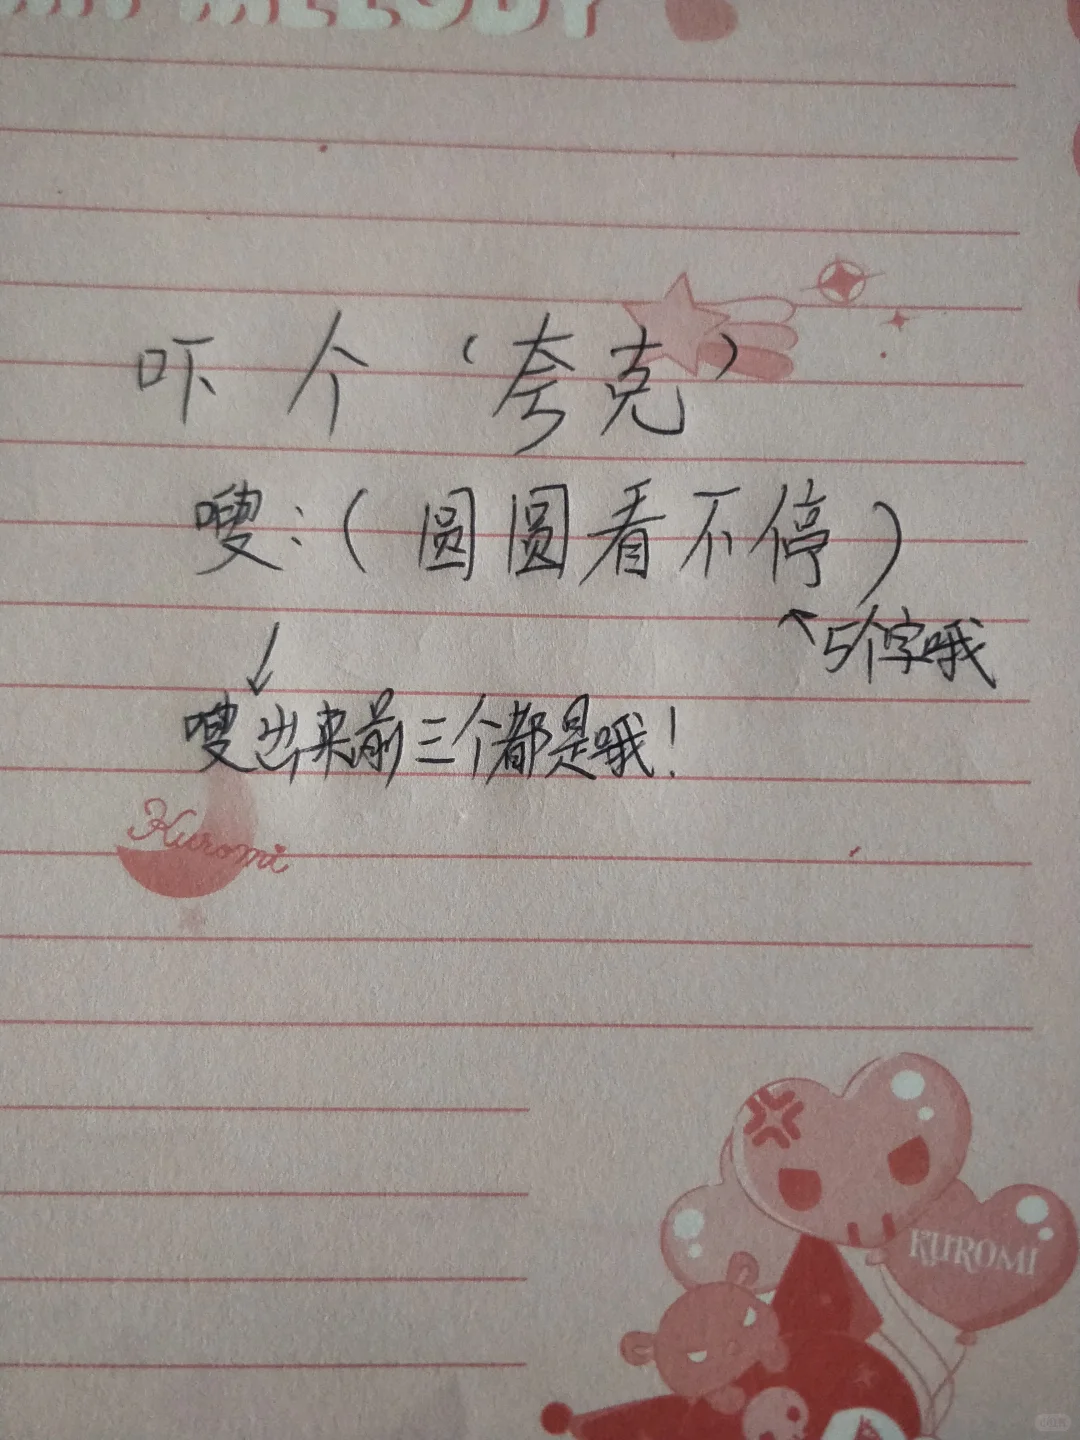 MY MELODY
吓个‘夸克’
嗖:(圆圆看不停)
↖5个字哦
↙
嗖出来前三个都是哦!
Kuromi
KUROMI